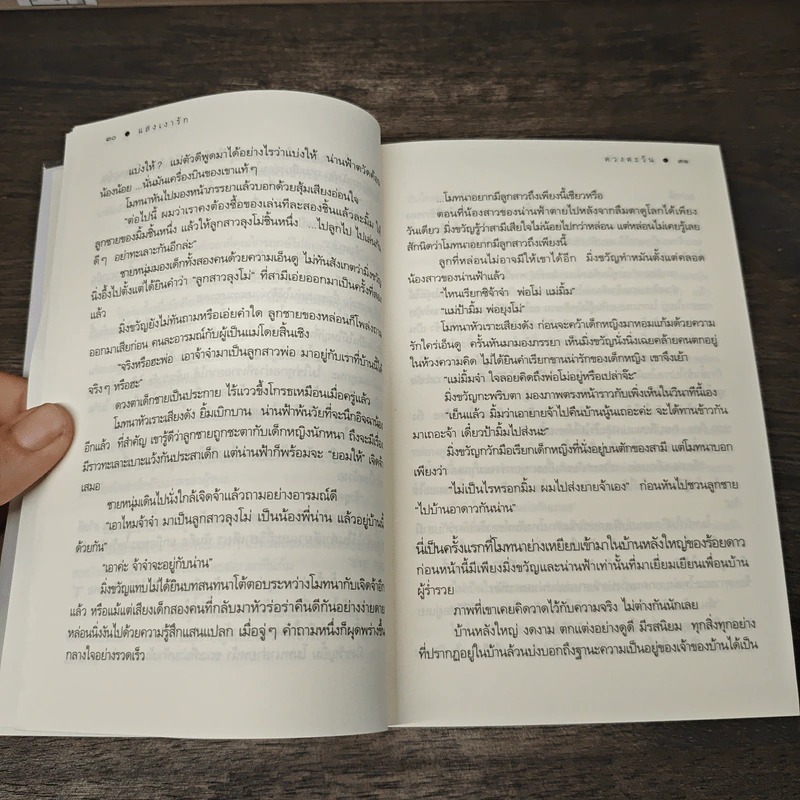 ๓๐ ● แสงเงารัก
แบ่งให้? แม่ตัวดีพูดมาได้อย่างไรว่าแบ่งให้ น่านฟ้าตวัดค้อน
น้องน้อย ...นั่นมันเครื่องบินของเขาแท้ๆ
โมทนาหันไปมองหน้าภรรยาแล้วบอกด้วยสุ้มเสียงอ่อนใจ
“ต่อไปนี้ ผมว่าเราคงต้องซื้อของเล่นทีละสองชิ้นแล้วละมิ้ม ให้
ลูกชายของมิ้มชิ้นหนึ่ง แล้วให้ลูกสาวลุงโมชิ้นหนึ่ง ...ไปลูกไป ไปเล่นกัน
ดีๆ อย่าทะเลาะกันอีกล่ะ”
ชายหนุ่มมองเด็กทั้งสองคนด้วยความเอ็นดู ไม่ทันสังเกตว่ามิ่งขวัญ
นิ่งอึ้งไปตั้งแต่ได้ยินคำว่า “ลูกสาวลุงโม” ที่สามีเอ่ยออกมาเป็นครั้งที่สอง
แล้ว
มิ่งขวัญยังไม่ทันถามหรือเอ่ยคำใด ลูกชายของหล่อนก็โพล่งถาม
ออกมาเสียก่อน คนละอารมณ์กับผู้เป็นแม่โดยสิ้นเชิง
“จริงหรือฮะพ่อ เอาจ้าจ๋ามาเป็นลูกสาวพ่อ มาอยู่กับเราที่บ้านนี้ได้
จริงๆ หรือฮะ”
ดวงตาเด็กชายเป็นประกาย ไร้แววขึ้งโกรธเหมือนเมื่อครู่แล้ว
โมทนาหัวเราะเสียงดัง ยิ้มเบิกบาน น่านฟ้าพ้นวัยที่จะนึกอิจฉาน้อง
อีกแล้ว ที่สำคัญ เขารู้ดีว่าลูกชายถูกชะตากับเด็กหญิงนักหนา ถึงจะมีเรื่อง
มีราวทะเลาะเบาะแว้งกันประสาเด็ก แต่น่านฟ้าก็พร้อมจะ “ยอมให้” เจิดจ้า
เสมอ
ชายหนุ่มเดินไปนั่งใกล้เจิดจ้าแล้วถามอย่างอารมณ์ดี
“เอาไหมจ้าจ๋า มาเป็นลูกสาวลุงโม เป็นน้องพี่น่าน แล้วอยู่บ้านนี้
ด้วยกัน”
“เอาค่ะ จ้าจ๋าจะอยู่กับน่าน”
มิ่งขวัญแทบไม่ได้ยินบทสนทนาโต้ตอบระหว่างโมทนากับเจิดจ้าอีก
แล้ว หรือแม้แต่เสียงเด็กสองคนที่กลับมาหัวร่อร่าคืนดีกันอย่างง่ายดาย
หล่อนนิ่งงันไปด้วยความรู้สึกแสนแปลก เมื่อจู่ๆ คำถามหนึ่งก็ผุดพร่างขึ้น
กลางใจอย่างรวดเร็ว
ดวงตะวัน ● ๓๑
...โมทนาอยากมีลูกสาวถึงเพียงนี้เชียวหรือ
ตอนที่น้องสาวของน่านฟ้าตายไปหลังจากลืมตาดูโลกได้เพียง
วันเดียว มิ่งขวัญรู้ว่าสามีเสียใจไม่น้อยไปกว่าหล่อน แต่หล่อนไม่เคยรู้เลย
สักนิดว่าโมทนาอยากมีลูกสาวถึงเพียงนี้
ลูกที่หล่อนไม่อาจมีให้เขาได้อีก มิ่งขวัญทำหมันตั้งแต่คลอด
น้องสาวของน่านฟ้าแล้ว
“ไหนเรียกซิจ้าจ๋า พ่อโม แม่มิ้ม”
“แม่ป้ามิ้ม พ่อยุงโม”
โมทนาหัวเราะเสียงดัง ก่อนจะคว้าเด็กหญิงมาหอมแก้มด้วยความ
รักใคร่เอ็นดู ครั้นหันมามองภรรยา เห็นมิ่งขวัญนั่งเฉยคล้ายคนตกอยู่
ในห้วงความคิด ไม่ได้ยินคำเรียกขานน่ารักของเด็กหญิง เขาจึงเย้า
“แม่มิ้มจ๋า ใจลอยคิดถึงพ่อโมอยู่หรือเปล่าจ๊ะ”
มิ่งขวัญกะพริบตา มองภาพตรงหน้าราวกับเพิ่งเห็นในวินาทีนี้เอง
“เย็นแล้ว มิ้มว่าเอายายจ้าไปคืนบ้านนู้นเถอะค่ะ จะได้ทานข้าวกัน
มาเถอะจ้า เดี๋ยวป้ามิ้มไปส่งนะ”
มิ่งขวัญกวักมือเรียกเด็กหญิงที่นั่งอยู่บนตักของสามี แต่โมทนาบอก
เพียงว่า
“ไม่เป็นไรหรอกมิ้ม ผมไปส่งยายจ้าเอง” ก่อนหันไปชวนลูกชาย
“ไปบ้านอาดาวกันน่าน”
นี่เป็นครั้งแรกที่โมทนาย่างเหยียบเข้ามาในบ้านหลังใหญ่ของร้อยดาว
ก่อนหน้านี้มีเพียงมิ่งขวัญและน่านฟ้าเท่านั้นที่มาเยี่ยมเยียนเพื่อนบ้าน
ผู้ร่ำรวย
ภาพที่เขาเคยคิดวาดไว้กับความจริง ไม่ต่างกันนักเลย
บ้านหลังใหญ่ งดงาม ตกแต่งอย่างดูดี มีรสนิยม ทุกสิ่งทุกอย่าง
ที่ปรากฏอยู่ในบ้านล้วนบ่งบอกถึงฐานะความเป็นอยู่ของเจ้าของบ้านได้เป็น